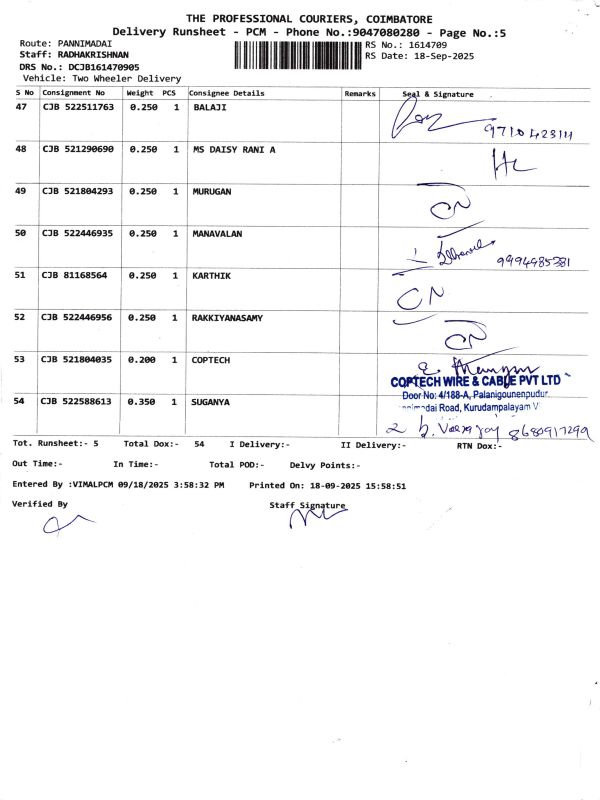 THE PROFESSIONAL COURIERS, COIMBATORE
Delivery Runsheet - PCM - Phone No.:9047080280 - Page No.:5
Route: PANNIMADAI
RS No.: 1614709
Staff: RADHAKRISHNAN
RS Date: 18-Sep-2025
DRS No.: DCJB161470905
Vehicle: Two Wheeler Delivery
S No Consignment No Weight PCS Consignee Details Remarks Seal & Signature
47 CJB 522511763 0.250 1 BALAJI
48 CJB 521290690 0.250 1 MS DAISY RANI A
49 CJB 521804293 0.250 1 MURUGAN CN
50 CJB 522446935 0.250 1 MANAVALAN 9994985381
51 CJB 81168564 0.250 1 KARTHIK CN
52 CJB 522446956 0.250 1 RAKKIYANASAMY CN
53 CJB 521804035 0.200 1 COPTECH
COPTECH WIRE & CABLE PVT LTD
Door No: 4/188-A, Palanigounenpudur
Road, Kurudampalayam V
54 CJB 522588613 0.350 1 SUGANYA 8680917299
Tot. Runsheet:- 5 Total Dox:- 54 I Delivery:- II Delivery:- RTN Dox:-
Out Time:- In Time:- Total POD:- Delvy Points:-
Entered By :VIMALPCM 09/18/2025 3:58:32 PM Printed On: 18-09-2025 15:58:51
Verified By Staff Signature